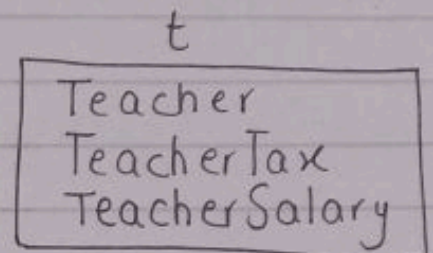 t
Teacher
TeacherTax
TeacherSalary